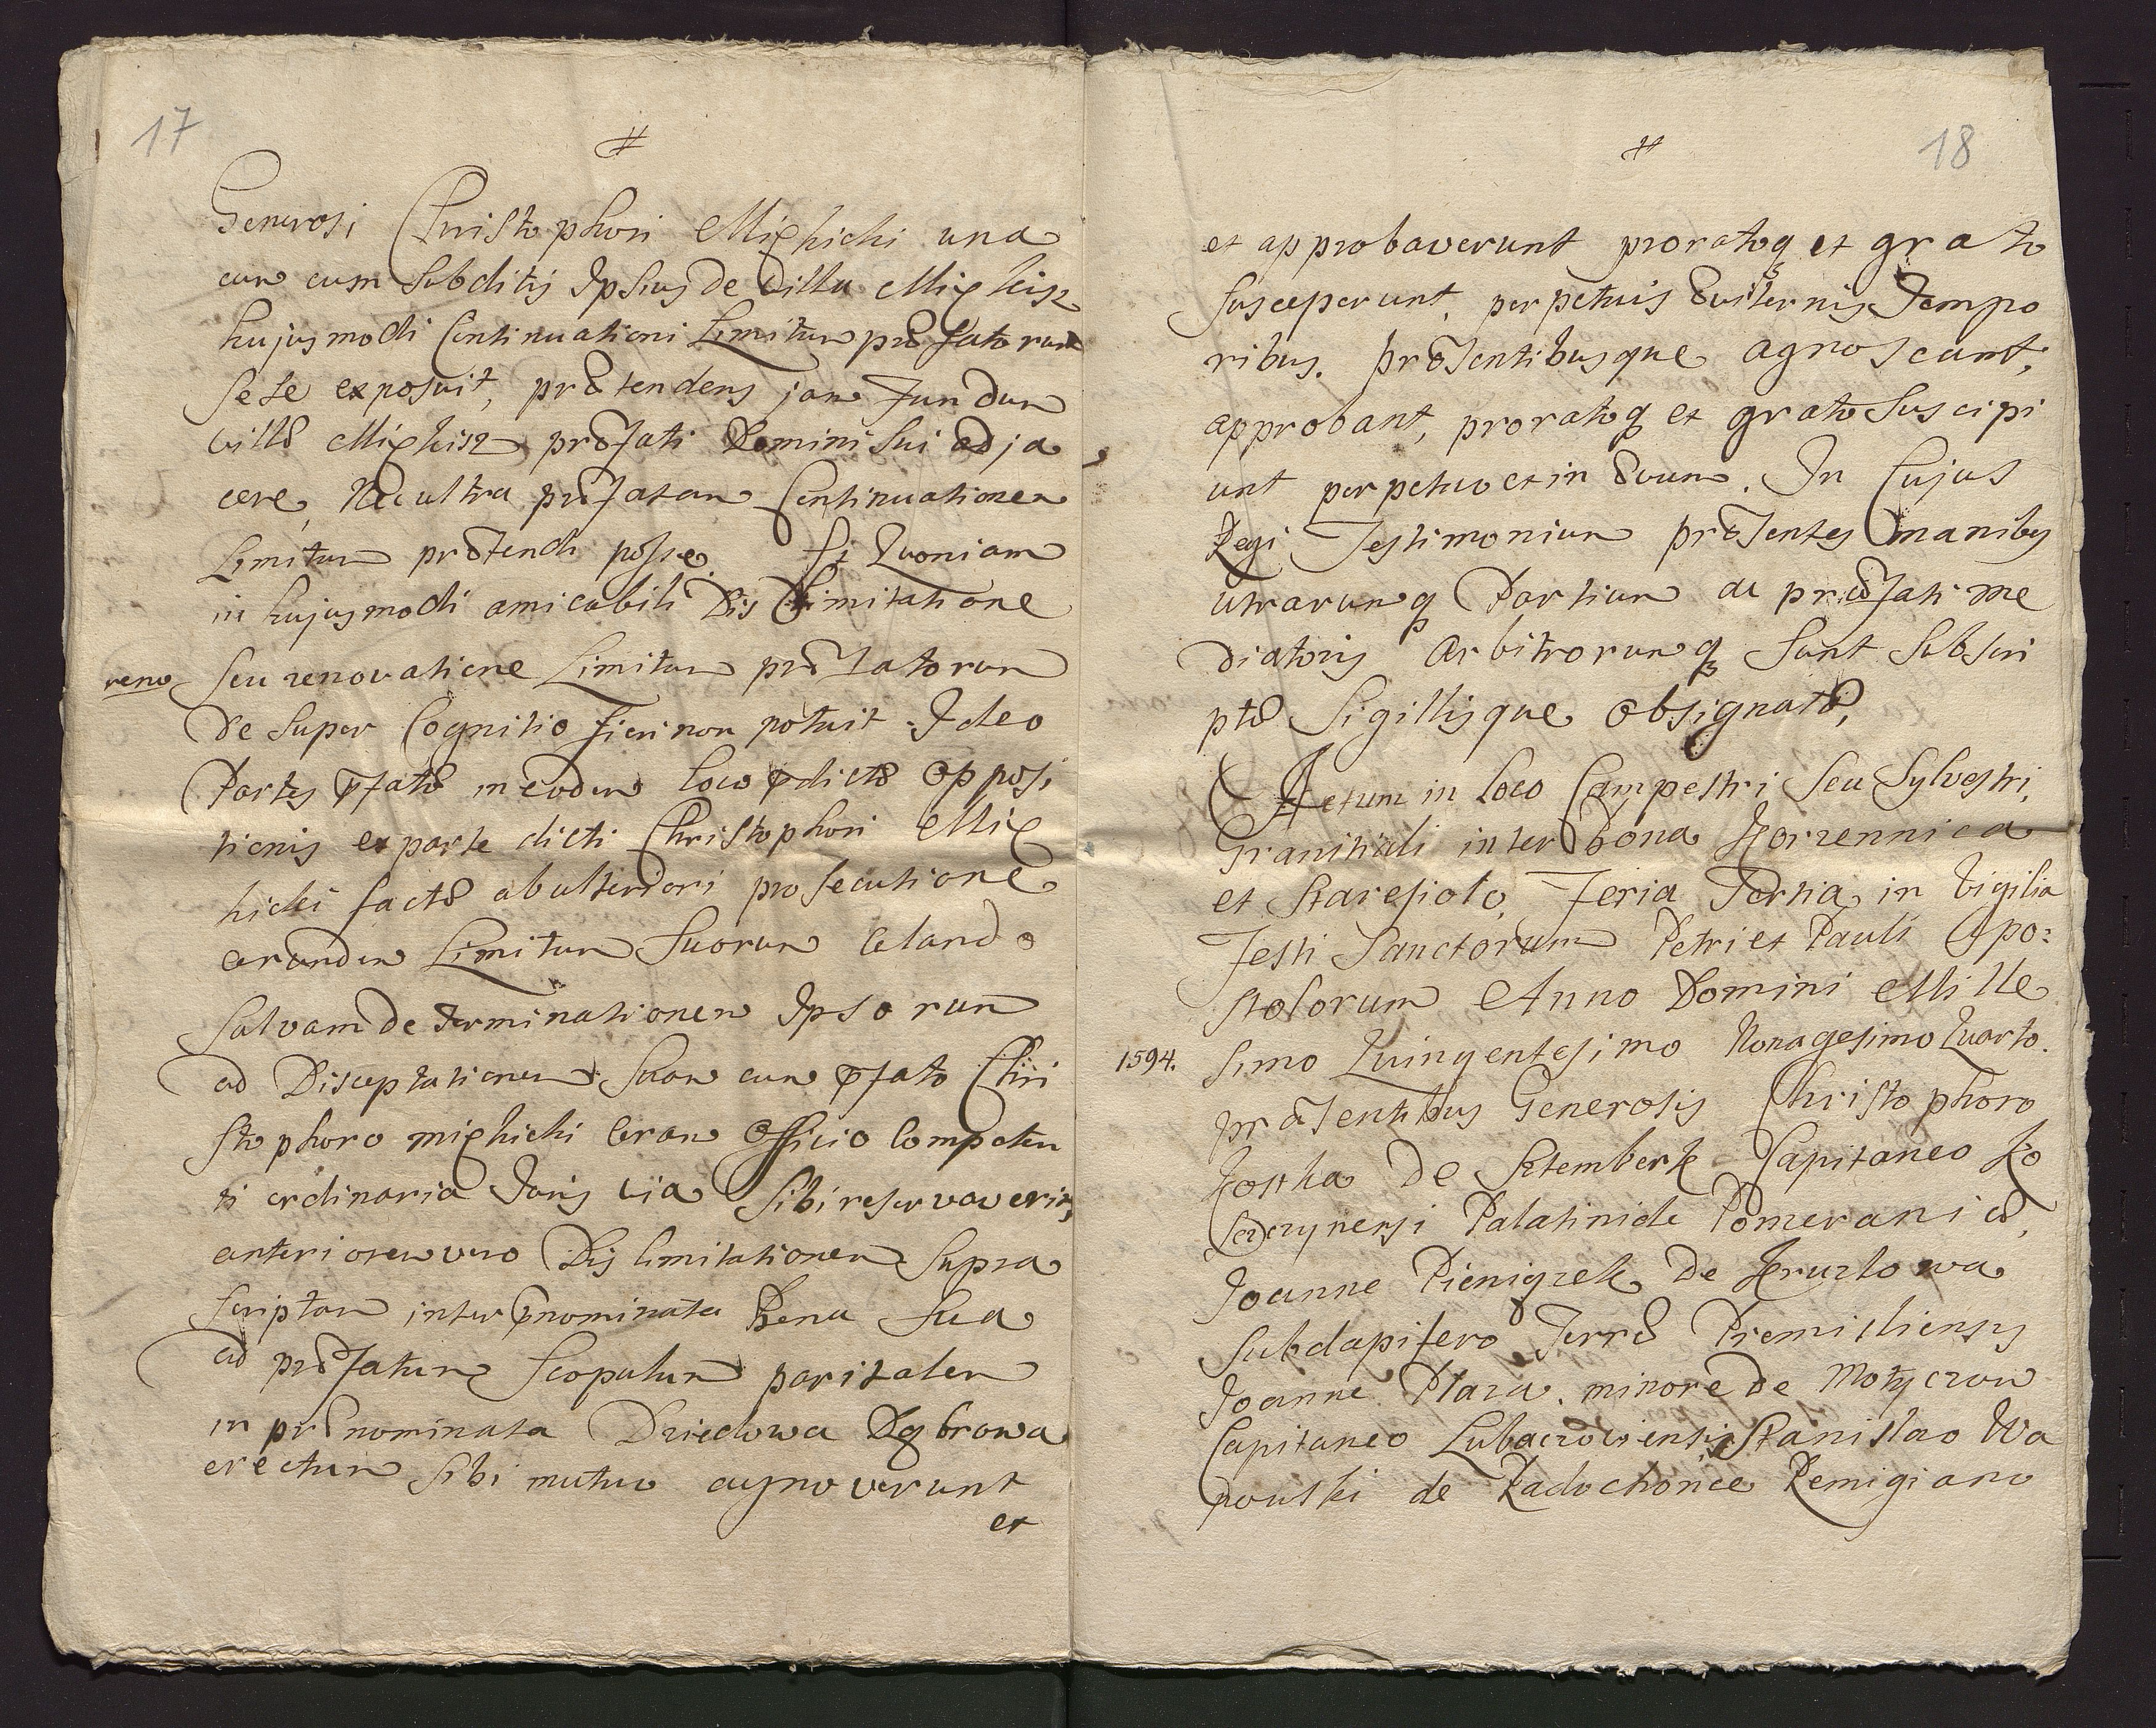 17
#
Generosi Christophori Mięhicki una
cum cum Subditis Ipsius de Villa Mięhisz
hujusmodi Continuationi Limitum præfatorum
sese exposuit, prætendens jam Fundum
villæ Mięhisz præfati Domini sui adja
cere, Nec ultra præfatam Continuationem
Limitum prætendi posse. Et Quoniam
in hujusmodi amicabili Dis Limitatione
reno seu renovatione Limitum præfatorum
de super Cognitio fieri non potuit. Ideo
Partes pfatæ in eodem loco pdictæ opposi
tionis ex parte dicti Christophori Mię
hicki factæ ab ulteriori prosecutione
eorundem Limitum suorum
salvam determinationem Ipsorum
ad Disceptationem suam cum pfato Chri
stophoro mięhicki coram Officio competen
ti ordinaria Juris via sibi reservaverint,
anteriorem vero Dislimitationem supra
scriptam inter pnominata Bona sua
ad præfatum Scopulum parietalem
in prænominata Dziedowa Dąbrowa
erectum sibi mutuo agnoverunt
et
18
#
et approbaverunt proratoq et grato
susceperunt, perpetuis Æviternis Tempo
ribus. præsentibusque agnoscunt,
approbant, proratoq et grato suscipi
unt perpetuo et in Ævum. In Cujus
Regi Testimonium præsentes manibus
utrarumq Partium ac præfati me
diatoris Arbitrorumq sunt subscri
ptæ Sigillisque obsignatæ,
Actum in loco Campestri seu Sylvestri,
Granitiali inter Bona Korzennica
et Staresioło, Feria Tertia in Vigilia
Festi Sanctorum Petri et Pauli Apo:
stolorum Anno Domini Mille
1594. simo Quingentesimo Nonagesimo Quarto.
præsentibus Generosis Christophoro
Kostka de Sztemberk Capitaneo Ko
scierzynensi Palatinide Pomeraniæ,
Joanne Pieniązek de Kruzlowa
Subdapifero Terræ Premisliensis
Joanne Płaza minore de Motyczow
Capitaneo Lubaczoviensi Stanislao Wa
powski de Radochonce Remigiano